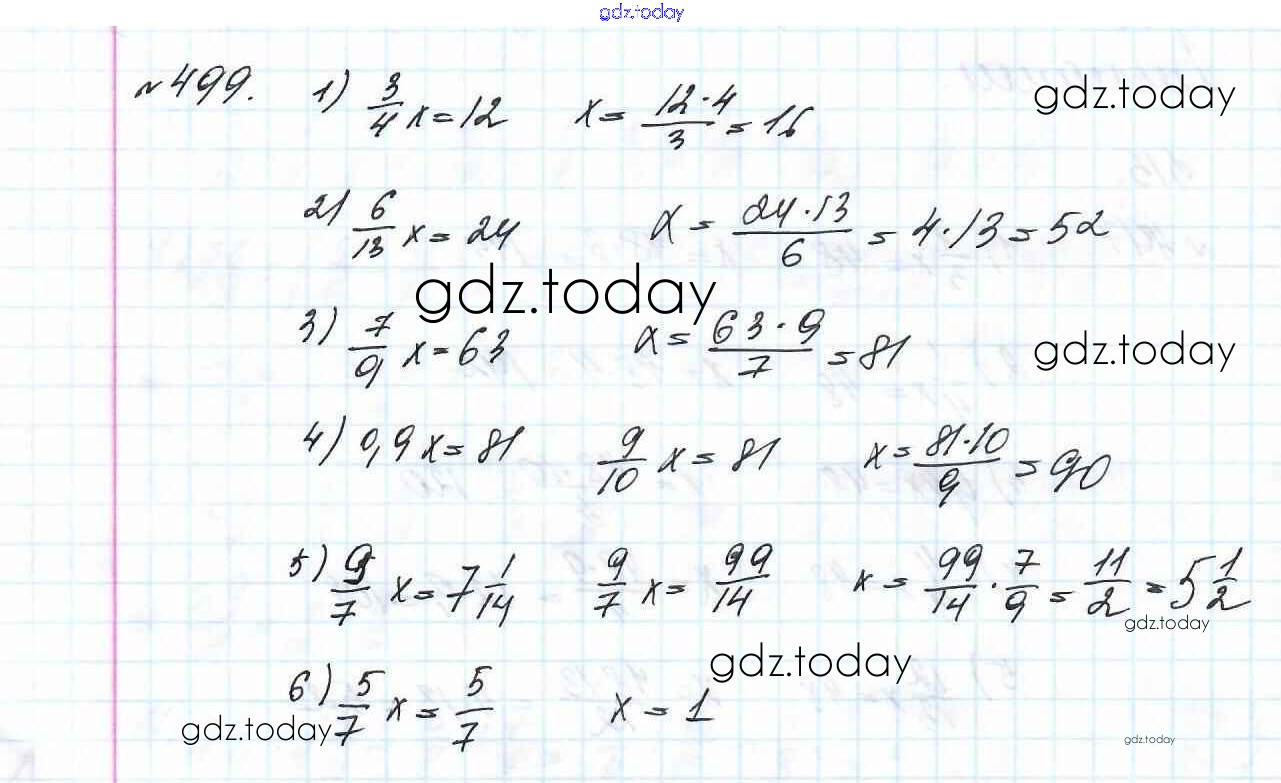 gdz.today
№499. 1) 3/4 x = 12 x = 12·4/3 = 16 gdz.today
2) 6/13 x = 24 x = 24·13/6 = 4·13 = 52
gdz.today
3) 7/9 x = 63 x = 63·9/7 = 81 gdz.today
4) 0,9 x = 81 9/10 x = 81 x = 81·10/9 = 90
5) 9/7 x = 7 1/14 9/7 x = 99/14 x = 99/14 · 7/9 = 11/2 = 5 1/2
gdz.today
gdz.today
6) 5/7 x = 5/7 x = 1
gdz.today
gdz.today